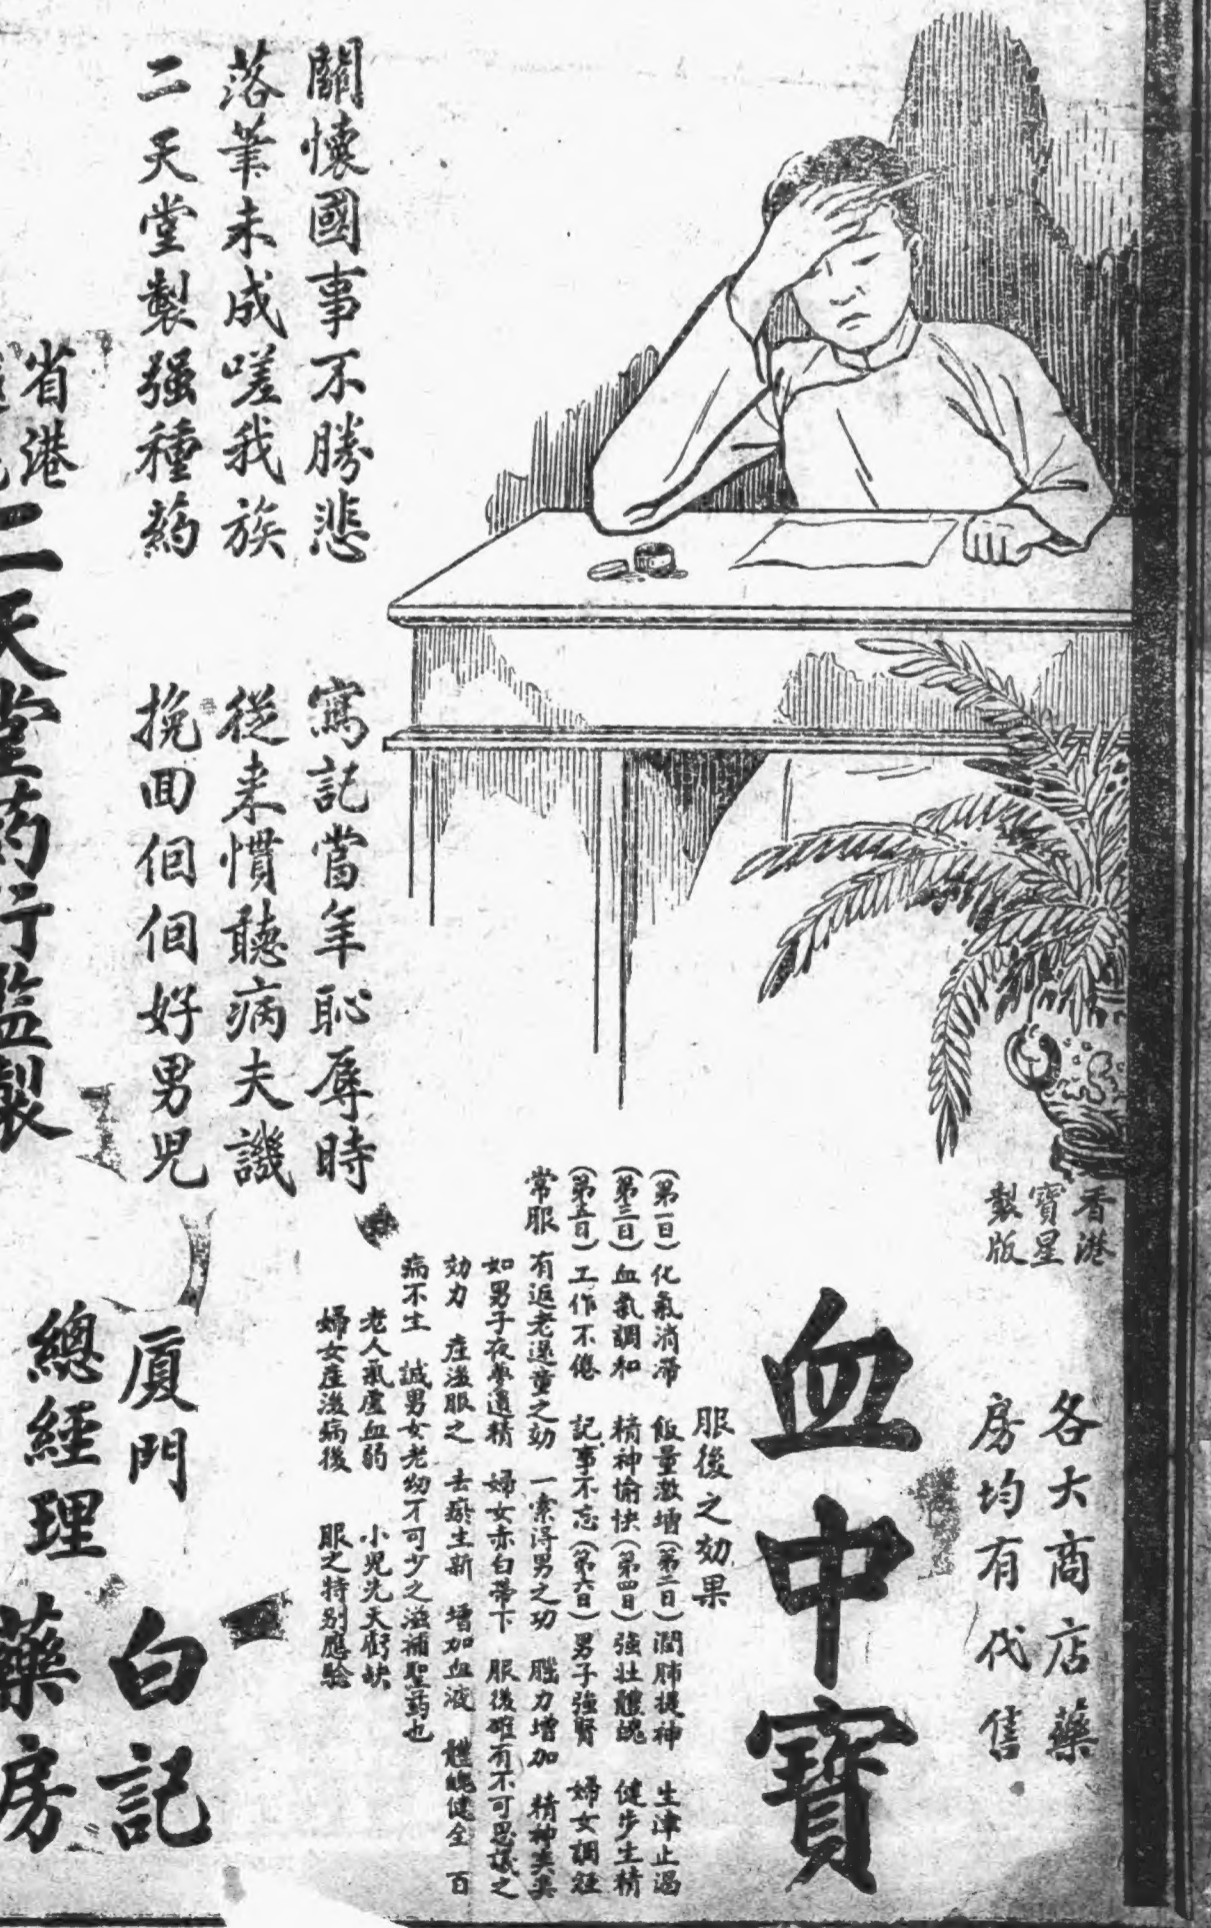 香港
寶星
製版
各大商店藥
房均有代售
血中寶
服後之効果
(第一日)化氣消滯 飯量激增(第二日)潤肺提神 生津止渴
(第三日)血氣調和 精神愉快(第四日)強壯體魄 健步生精
(第五日)工作不倦 記事不忘(第六日)男子強腎 婦女調經
常服 有返老還童之効 一索得男之功 腦力增加 精神奕奕
如男子夜夢遺精 婦女赤白帶下 服後確有不可思議之
効力 產後服之 去瘀生新 增加血液 體魄健全 百
病不生 誠男女老幼不可少之滋補聖药也
老人氣虛血弱 小兒先天虧缺
婦女產後病後 服之特別應驗
關懷國事不勝悲 寫記當年恥辱時
落筆未成嗟我族 從來慣聽病夫譏
二天堂製强種药 挽回個個好男兒
廈門 白記
省港
二天堂药行監製
總經理 藥房